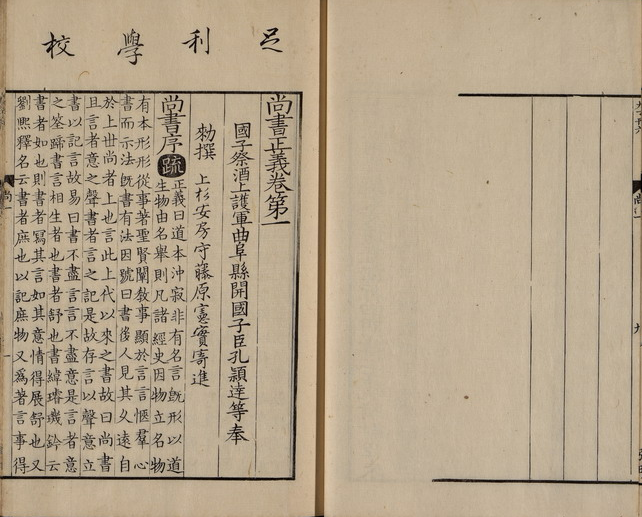 足利學校
尚書正義卷第一
國子祭酒上護軍曲阜縣開國子臣孔穎達等奉
勑撰
上杉安房守藤原憲實寄進
尚書序
疏
正義曰道本沖寂非有名言既形以道
生物由名舉則凡諸經史因物立名物
有本形形從事著聖賢闡教事顯於言言愜羣心
書而示法既書有法因號曰書後人見其久遠自
於上世尚者上也言此上代以來之書故曰尚書
且言者意之聲書者言之記是故存言以聲意立
書以記言故易曰書不盡言言不盡意是言者意
之筌蹄書言相生者也書者舒也書緯璿璣鈐云
書者如也則書者寫其言如其意情得展舒也又
劉熙釋名云書者庶也以記庶物又爲著言事得
尚一